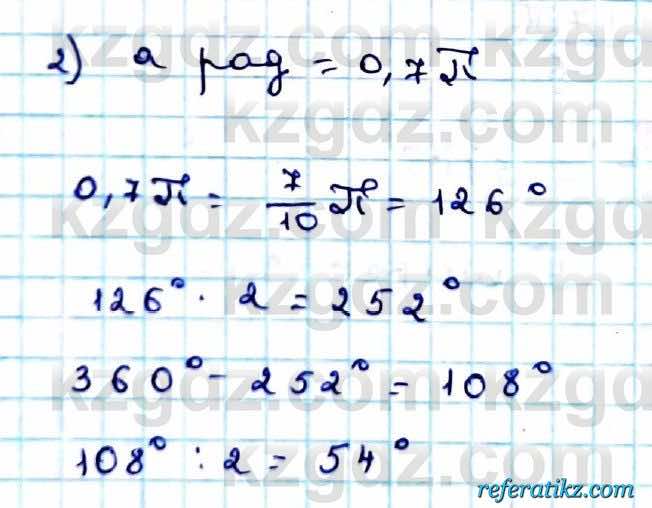 kzgdz.com kzgdz
2) а рад = 0,7π
kzgdz.com
0,7π = 7/10 π = 126°
kzgdz.com
126° · 2 = 252°
kzgdz.com
360° - 252° = 108°
kzgdz.com
108° : 2 = 54°
referatikz.com